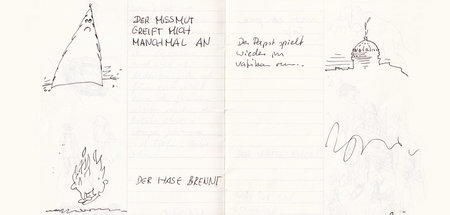 DER MISSMUT
GREIFT MICH
MANCHMAL AN
Der Papst spielt
wieder im
Vatikan rum...
DER HASE BRENNT